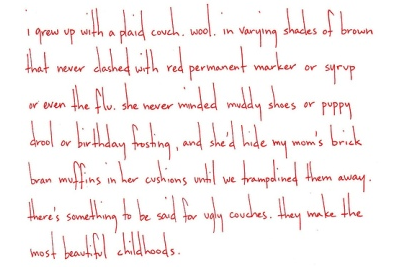 i grew up with a plaid couch. wool. in varying shades of brown
that never clashed with red permanent marker or syrup
or even the flu. she never minded muddy shoes or puppy
drool or birthday frosting, and she'd hide my mom's brick
bran muffins in her cushions until we trampolined them away.
there's something to be said for ugly couches. they make the
most beautiful childhoods.